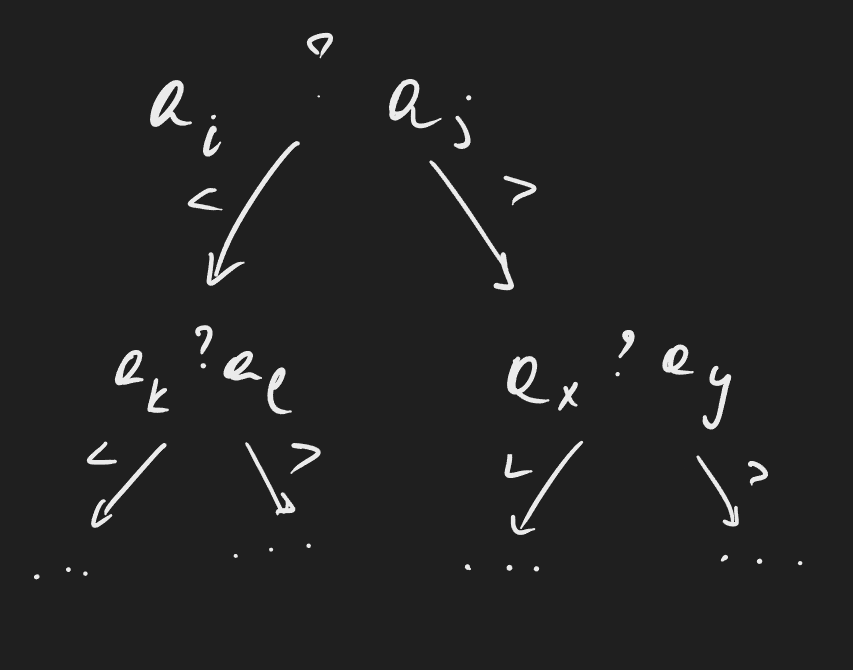 a_i ? a_j
< >
a_k ? a_l a_x ? a_y
< > < >
... ... ... ...